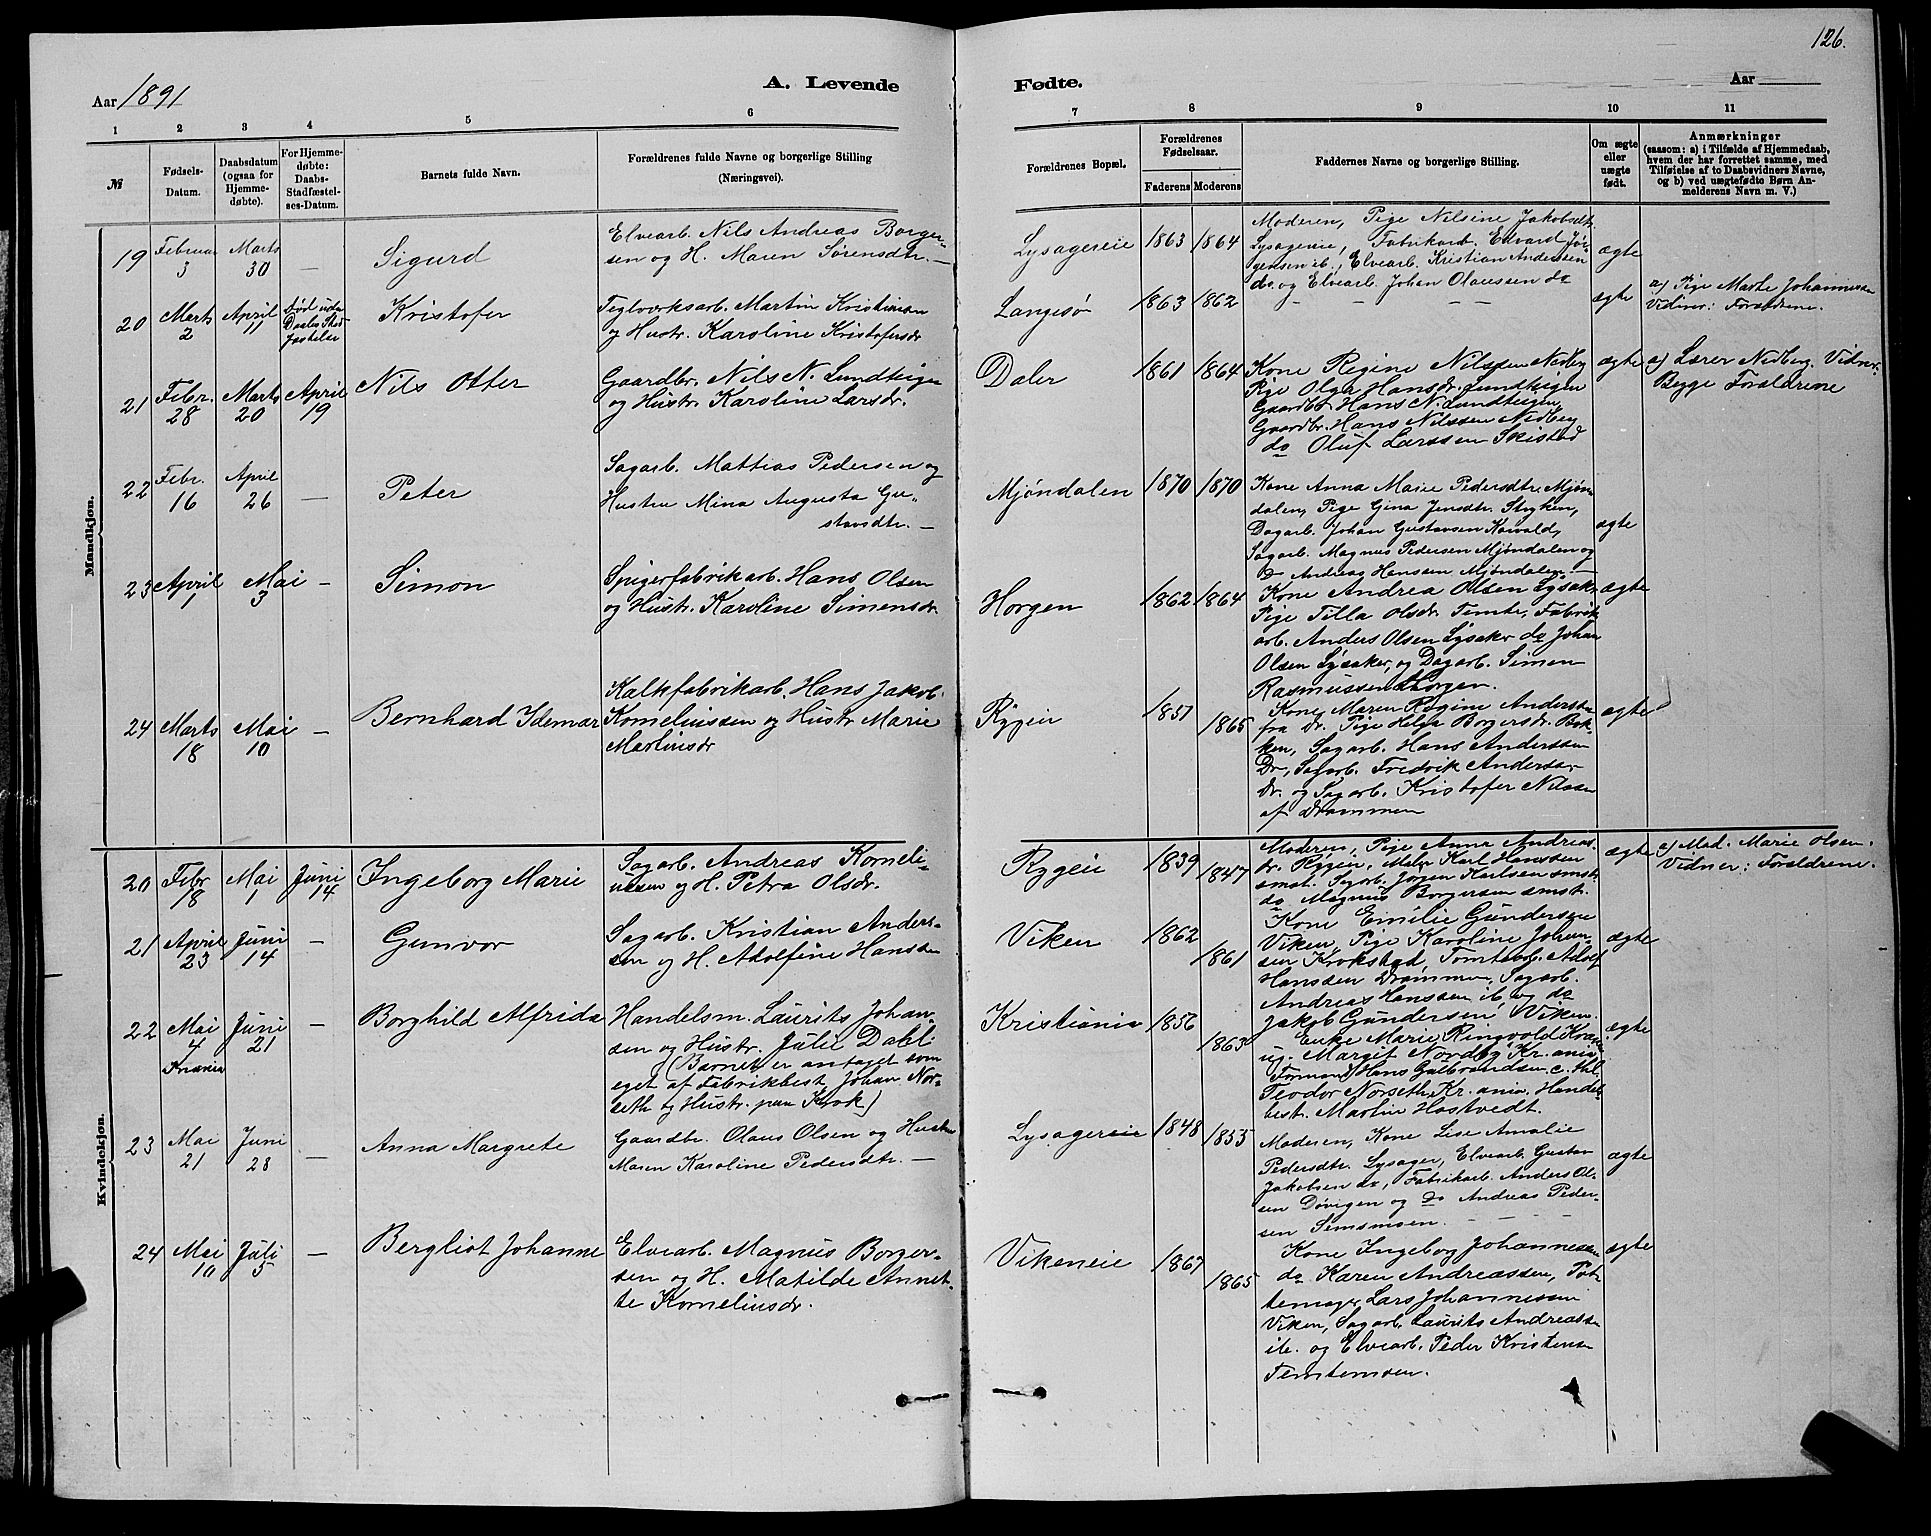 126.
Aar 1891
A. Levende
Fødte.
Aar
1 2 3 4 5 6 7 8 9 10 11
№
Fødsels-
Datum.
Daabsdatum
(ogsaa for
Hjemme-
døbte).
For Hjemme-
døbte:
Daabs-
Stadfæstel-
ses-Datum.
Barnets fulde Navn.
Forældrenes fulde Navne og borgerlige Stilling
(Næringsvei).
Forældrenes Bopæl.
Forældrenes
Fødselsaar.
Faderens
Moderens
Faddernes Navne og borgerlige Stilling.
Om ægte
eller
uægte
født.
Anmærkninger
(saasom: a) i Tilfælde af Hjemmedaab,
hvem der har forrettet samme, med
Tilføielse af to Daabsvidners Navne,
og b) ved uægtefødte Børn An-
melderens Navn m. V.)
Mandkjøn.
19
Februar
3
Marts
30
—
Sigurd
Elvearb. Nils Andreas Borger-
sen og H. Maren Sørensdtr. —
Lysagereie
1863
1864
Moderen, Pige Nilsine Jakobsdtr.
Lysagereie, Fabrikarb. Edvard Jør-
gensen ib., Elvearb. Kristian Andersen
do. og Elvearb. Johan Olaussen do
ægte
20
Marts
2
April
11
død uden
Daabs Stad
fæstelse
Kristofer
Teglværksarb. Martin Kristiansen
og Hustr. Karoline Kristofersdr
Langesø
1863
1862
— — —
ægte
a) Pige Marte Johannesen
Vidner: Forældrene.
21
Febr.
28
Marts
20
April
19
Nils Otter
Gaardbr. Nils N. Lundteigen
og Hustr. Karoline Larsdr.
Daler
1861
1864
Kone Regine Nilssen Nedberg
Pige Olga Hansdr. Lundteigen
Gaardbr. Hans N. Lundteigen,
Gaardbr. Hans Nilssen Nedberg
do Oluf Larssen Skistad
ægte
a) Lærer Nedberg. Vidner:
Begge Forældrene
22
Febr.
16
April
26
—
Peter
Sagarb. Mattias Pedersen og
Hustru Mina Augusta Gu-
stavsdtr. —
Mjøndalen
1870
1870
Kone Anna Marie Pedersdtr. Mjøn-
dalen, Pige Gina Jensdtr. Stryken,
Dagarb. Johan Gustavsen
Sagarb. Magnus Pedersen Mjøndalen og
Do Andreas Hanssen Mjøndalen. —
ægte
23
April
1
Mai
3
—
Simon
Spigerfabrikarb. Hans Olsen
og Hustr. Karoline Simensdr.
Horgen
1862
1864
Kone Andrea Olsen Lysaker
Pige Tilla Olsdr. Temte, Fabrik
arb. Anders Olsen Lysaker do Johan
Olsen Lysaker, og Dagarb. Simen
Rasmussen Horgen.
ægte
24
Marts
18
Mai
10
—
Bernhard Idemar
Kalkfabrikarb. Hans Jakob
Korneliussen og Hustr Marie
Martinsdr
Rygeie
1851
1865
Kone Maren Regine Andersen
fra Dr. Pige Helga Borgersdr. Bak-
ken, Sagarb. Hans Anderssen
Dr., Sagarb. Fredrik Anderssen
Dr. og Sagarb. Kristofer Nilssen
af Drammen
ægte
Kvindekjøn.
20
Febr
18
Mai
1
Juni
14
Ingeborg Marie
Sagarb. Andreas Korneli-
ussen og H. Petra Olsdr.
Rygeie
1839
1847
Moderen, Pige Anna Andreas
dr. Rygeie, Maler Karl Hanssen
smst. Sagarb. Jørgen Karlsen smst.
do Magnus Borgersen smst.
ægte
a) Mad. Marie Olsen.
Vidner: Forældrene.
21
April
23
Juni
14
—
Gunvor
Sagarb. Kristian Anders-
sen og H. Adolfine Hanssen
Viken
1862
1861
Kone Emilie Gundersen
Viken, Pige Karoline Johan-
sen Krokstad, Tomtearb. Adolf
Hanssen Drammen, Sagarb.
Andreas Hanssen ib. og do
Jakob Gundersen Viken.
ægte
22
Mai
4
Kr.ania
Juni
21
—
Borghild Alfrida
Handelsm. Laurits Johan-
sen og Hustr. Julie Dahl
(Barnet er antaget som
eget af Fabrikbest Johan Nor-
seth og Hustr. paa Krok)
Kristiania
1856
1863
Enke Marie Ringvold
ug. Margit Nordby Kr.ania
Formand Hans Gulbrandsen
Teodor Norseth Kr.ania, Handels
best. Martin Hostvedt.
ægte
23
Mai
21
Juni
28
—
Anna Margrete
Gaardbr. Olaus Olsen og Hustru
Maren Karoline Pedersdtr. —
Lysagereie
1848
1855
Moderen, Kone Lise Amalie
Pedersdtr. Lysager, Elvearb. Gustav
Jakobsen do, Fabrikarb. Anders Ol-
sen Døvigen og do Andreas Peder-
sen Semsmoen. — — —
ægte
24
Mai
10
Juli
5
—
Bergliot Johanne
Elvearb. Magnus Borger-
sen og H. Matilde Annet-
te Korneliusdr.
Vikeneie
1867
1865
Kone Ingeborg Johannessen
do Karen Andreassen, Pot-
temager Lars Johannessen
Viken, Sagarb. Laurits Andreassen
ib. og Elvearb. Peder Kristensen
Temtemoen.
ægte